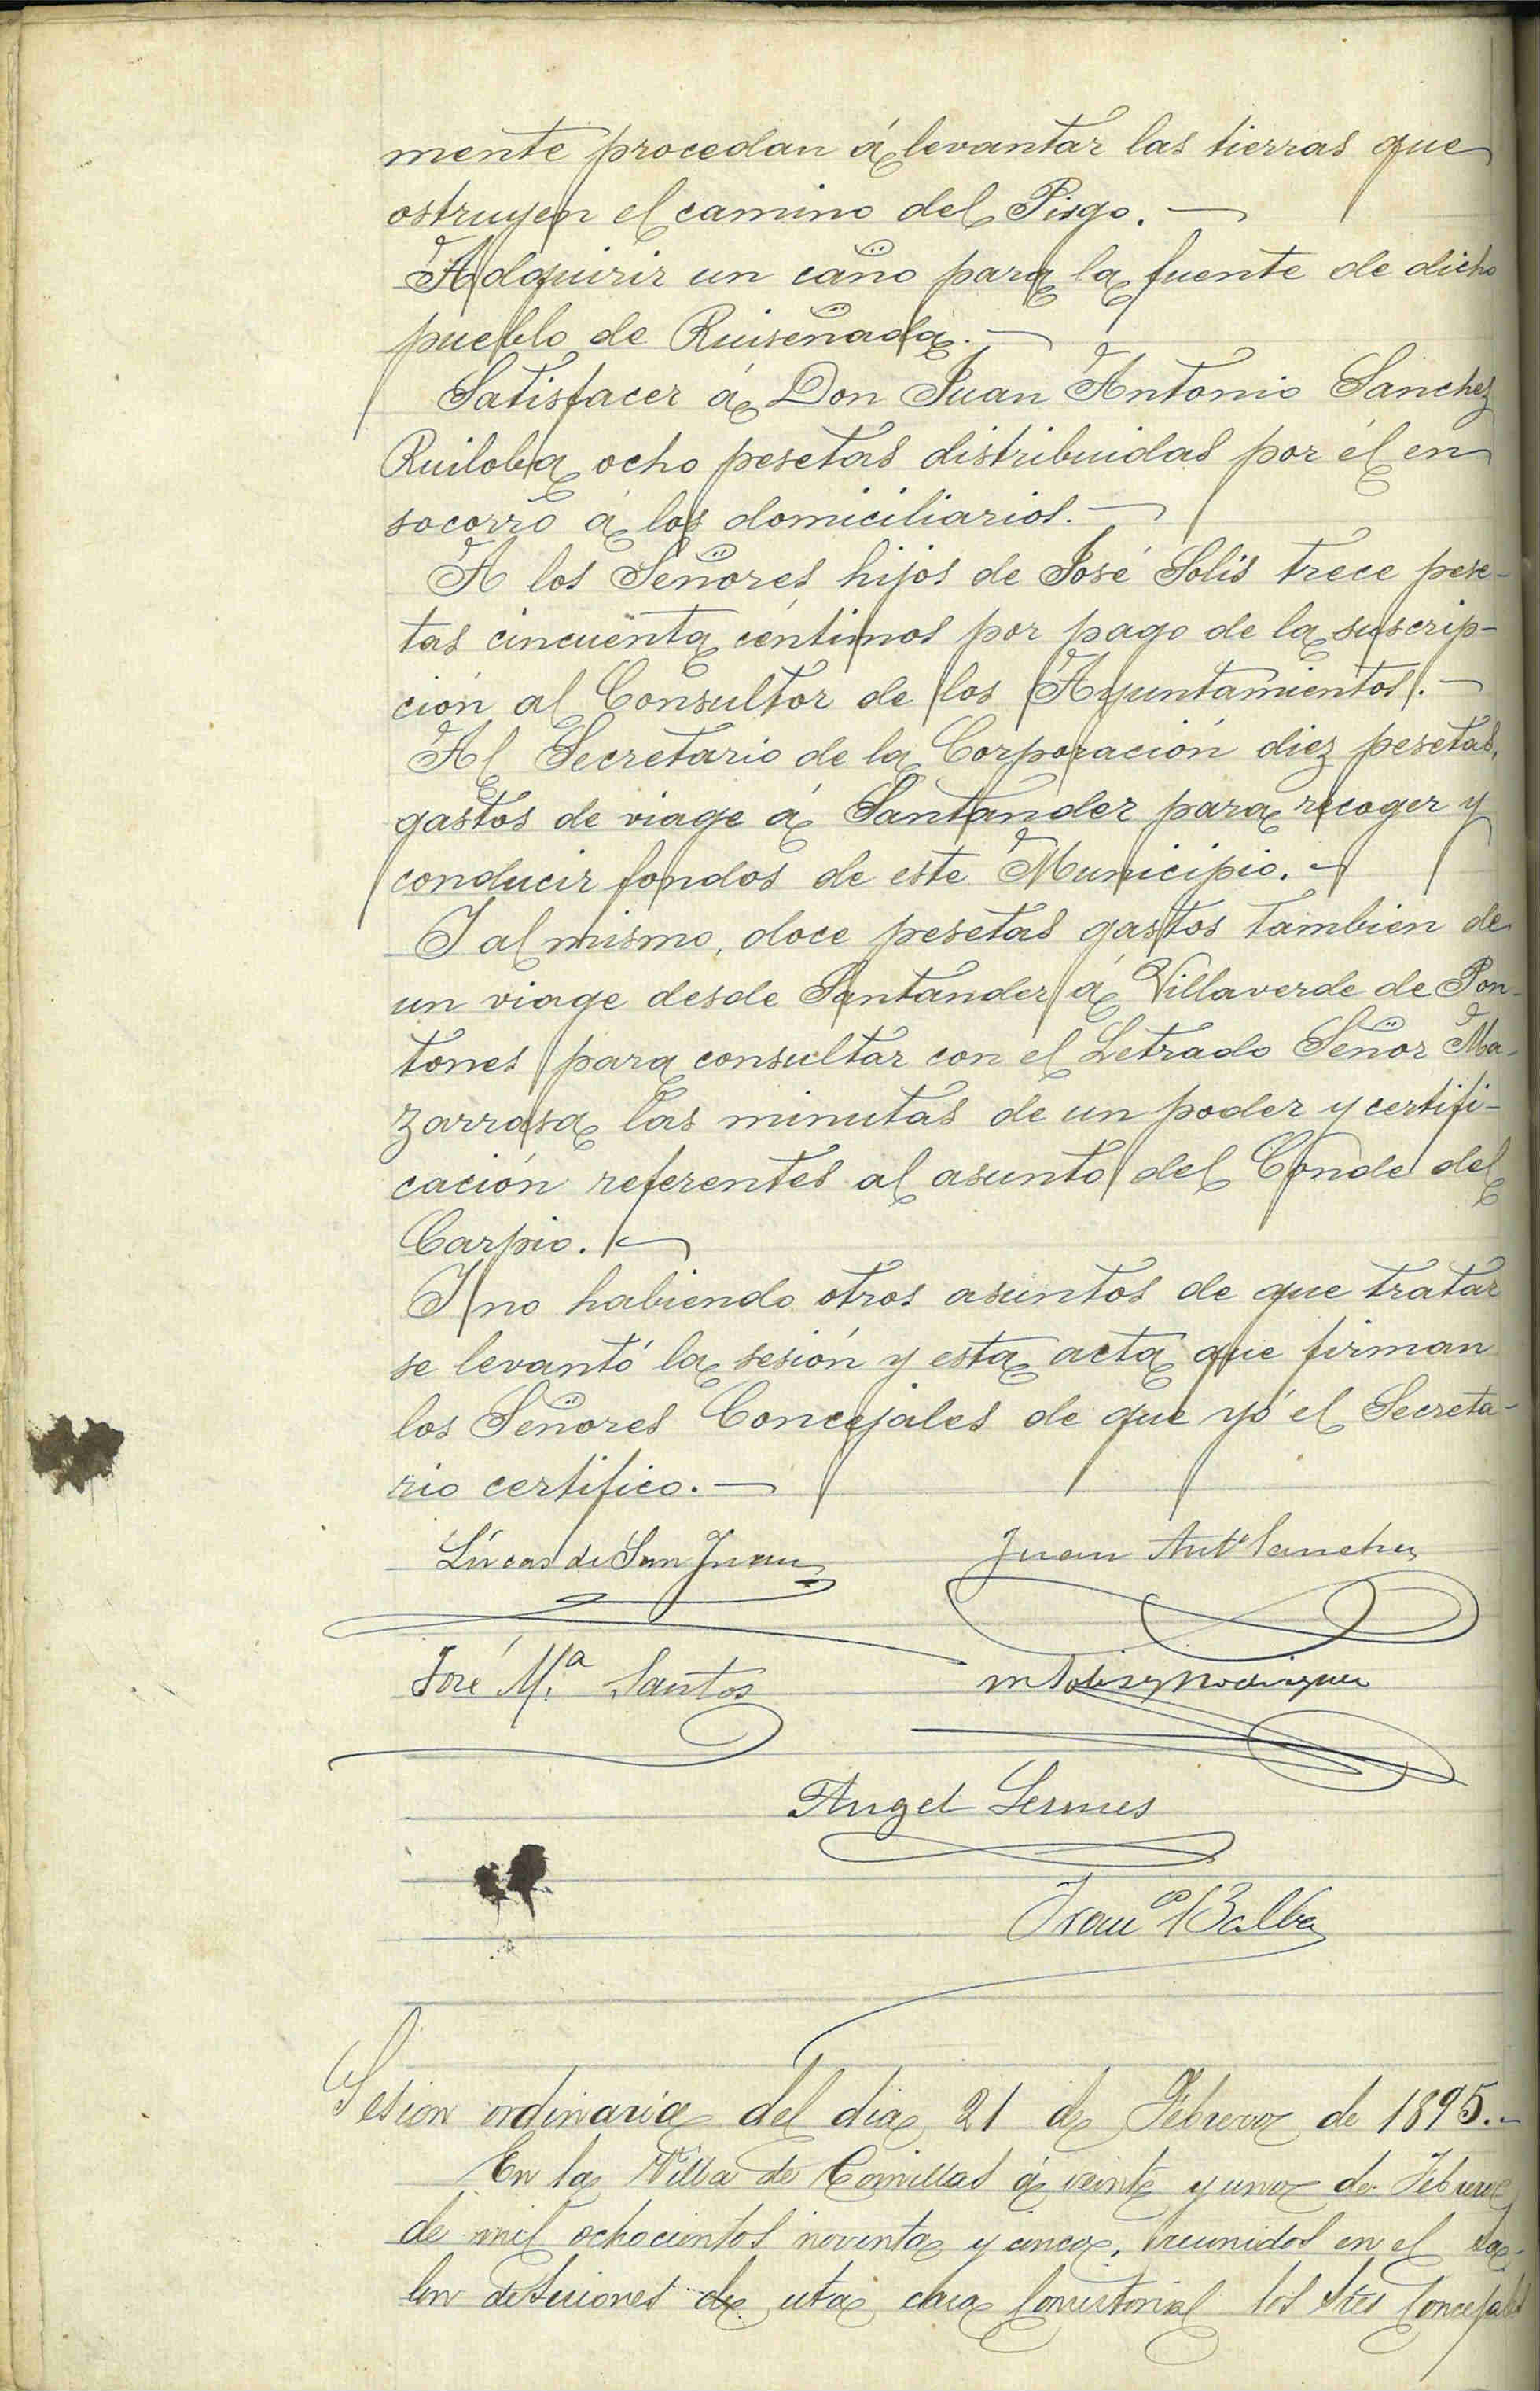 mente procedan á levantar las tierras que
ostruyen el camino del Pisgo. —
Adquirir un caño para la fuente de dicho
pueblo de Ruiseñada. —
Satisfacer á Don Juan Antonio Sanchez
Ruiloba ocho pesetas distribuidas por él en
socorro á los domiciliarios. —
A los Señores hijos de José Solís trece pese-
tas cincuenta céntimos por pago de la suscrip-
ción al Consultor de los Ayuntamientos. —
Al Secretario de la Corporación diez pesetas,
gastos de viage á Santander para recoger y
conducir fondos de este Municipio. —
I al mismo, doce pesetas gastos tambien de
un viage desde Santander á Villaverde de Pon-
tones para consultar con el Letrado Señor Ma-
zarrasa las minutas de un poder y certifi-
cación referentes al asunto del Conde del
Carpio. —
I no habiendo otros asuntos de que tratar
se levantó la sesión y esta acta que firman
los Señores Concejales de que yó el Secreta-
rio certifico. —
Lúcas de San Juan
Juan Antº Sanchez
José M.ª Santos
M Solis y Rodriguez
Angel Lesmes
Franco Balba
Sesion ordinaria del dia 21 de Febrero de 1895.-
En la Villa de Comillas á veinte y uno de Febrero
de mil ochocientos noventa y cinco, reunidos en el sa-
lon de Sesiones de esta casa Consistorial los Sres Concejales